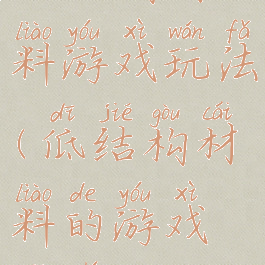 liào yóu xì wán fǎ
料游戏玩法
dī jié gòu cái
（低结构材
liào de yóu xì
料的游戏